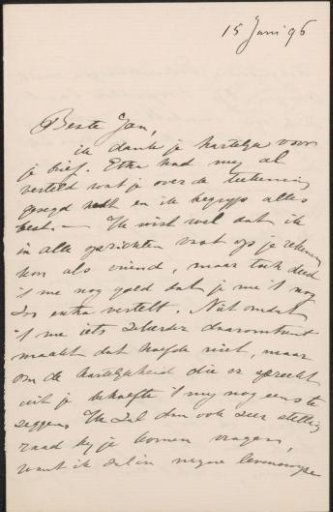 15 Juni 96
Beste Jan,
ik dank je hartelijk voor
je brief. Etha had mij al
verteld wat je over de teekening
gezegd hadt en ik begrijp alles
best. — Ik wist wel dat ik
in alle opzichten vast op je rekenen
kon als vriend, maar toch deed
't me nog goed dat je me 't nog
zoo extra vertelt. Niet omdat
't me iets zekerder daaromtrent
maakt dat hoefde niet, maar
om de hartelijkheid die er spreekt
uit je behoefte 't mij nog eens te
zeggen. Ik zal dan ook zeer stellig
raad bij je komen vragen,
want ik zal in mijne